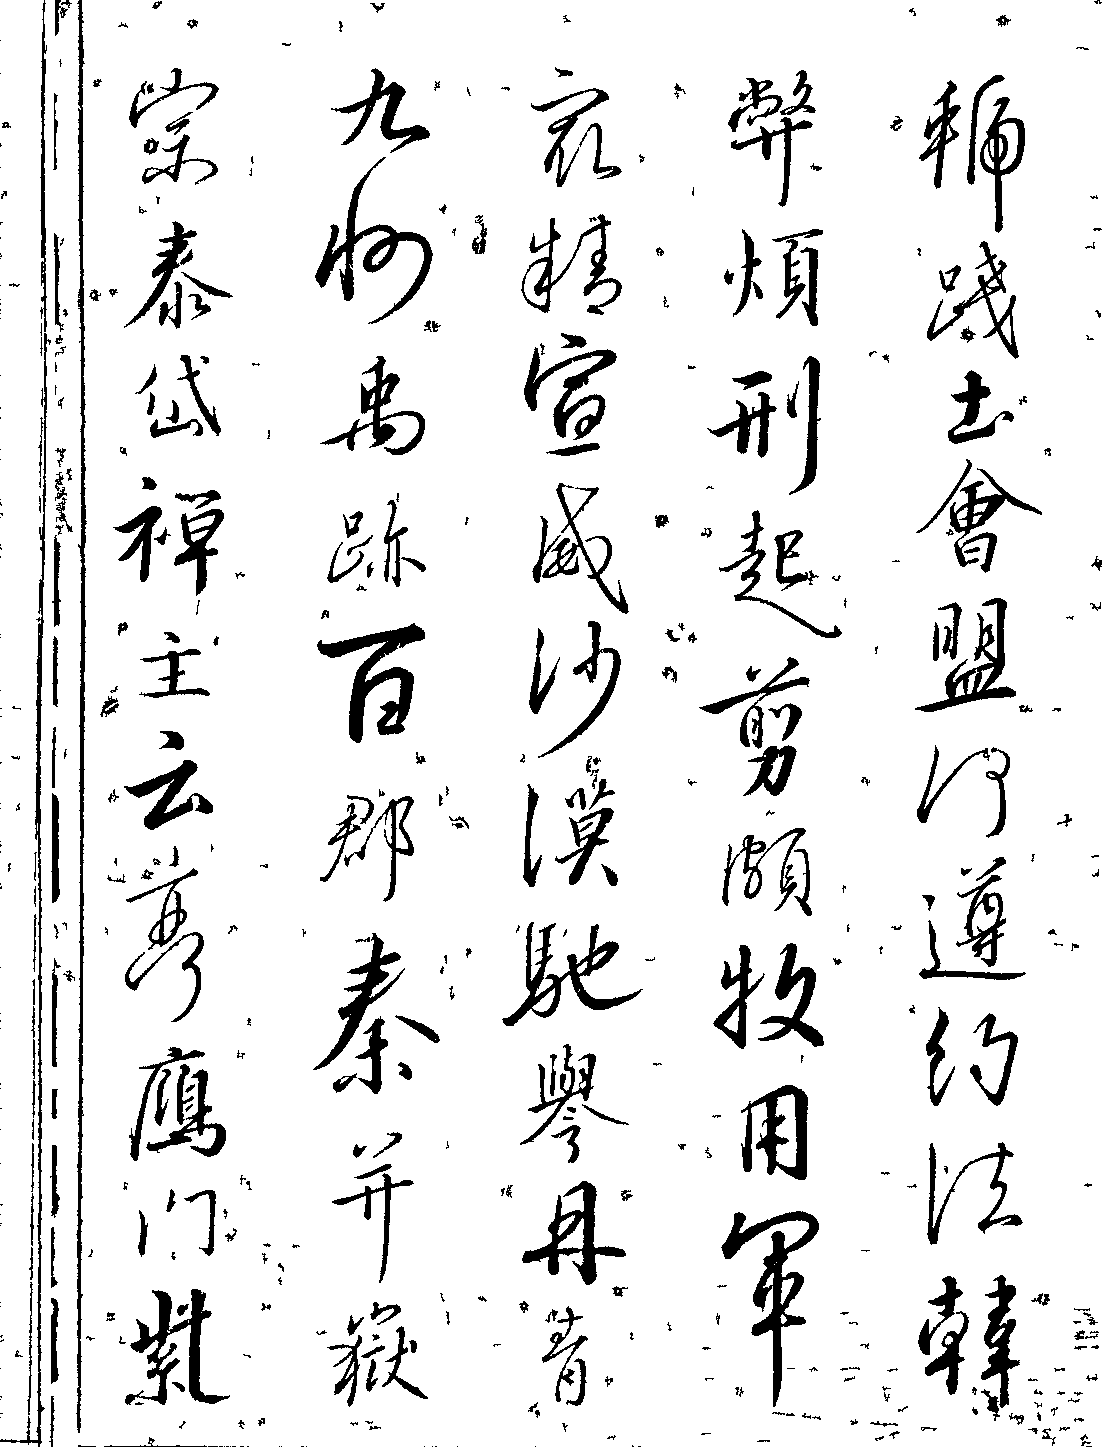 虢踐土會盟何遵約法韓
弊煩刑起翦頗牧用軍
最精宣威沙漠馳譽丹青
九州禹跡百郡秦并嶽
宗泰岱禪主云亭鴈門紫